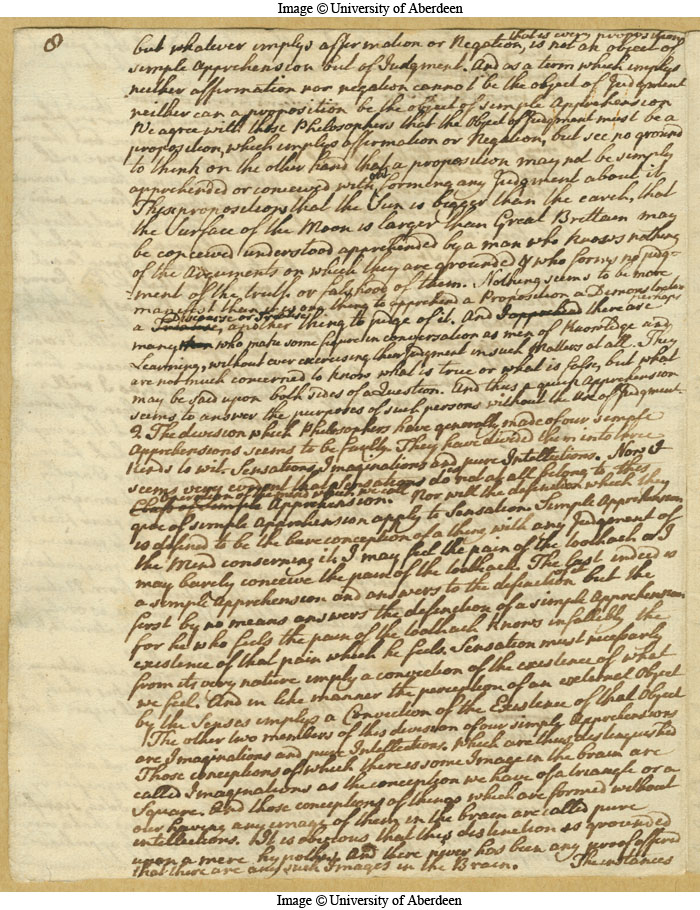 Image © University of Aberdeen
8
that is every proposition
but whatever implys affirmation or Negation, is not an object of
simple Apprehension but of Judgment. And as a term which implys
neither affirmation nor negation cannot be the object of Judgment
neither can a proposition be the object of simple Apprehension
We agree with those Philosophers that the Object of Judgment must be a
proposition, which implys affirmation or Negation, but see no ground
to think on the other hand that a proposition may not be simply
out
apprehended or conceived with forming any Judgment about it
These propositions that the Sun is bigger than the earth, that
the Surface of the Moon is larger than Great Brittain may
be conceived understood apprehended by a man who knows nothing
of the Arguments on which they are grounded & who forms no judg-
ment of the truth or falshood of them. Nothing seems to be more
manifest than it is one thing to apprehend a Proposition a Demonstration
Discourse or Treatise perhaps
a , another thing to judge of it. And I apprehend there are
many who make some figure in conversation as men of Knowledge and
Learning, without ever exercising their Judgment in such Matters at all. They
are not much concerned to know what is true or what is false, but what
may be said upon both sides of a Question. And thus a quick Apprehension
seems to answer the purposes of such persons without the Use of Judgment.
2. The division which Philosophers have generally made of our simple
Apprehensions seems to be faulty. They have divided them into three
kinds to wit. Sensations, Imaginations and pure Intellections. Now it
seems very evident that Sensations do not at all belong to this
operation of the mind which we call
Class of Simple Apprehension. Nor will the definition which they
give of simple Apprehension apply to Sensation. Simple Apprehension
is defined to be the bare conception of a thing with any Judgment of
the Mind concerning it. I may feel the pain of the toothach or I
may barely conceive the pain of the toothach. The last indeed is
a simple Apprehension and answers to the definition but the
first by no means answers the definition of a simple Apprehension
for he who feels the pain of the toothach knows infallibly the
existence of that pain which he feels. Sensation must necessarly
from its very nature imply a conviction of the existence of what
we feel. And in like manner the perception of an external Object
by the Senses implys a Conviction of the Existence of that Object
The other two members of this division of our simple Apprehensions
are Imaginations and pure Intellections, which are thus distinguished
Those conceptions of which there is some Image in the brain are
called Imaginations as the conception we have of a triangle or a
Square. And those conceptions of things which are formed without
our having any image of them in the brain are called pure
intellections. It is obvious that this distinction is grounded
upon a mere hypothesis, and there never has been any proof offered
that there are any such Images in the Brain. The instances
Image © University of Aberdeen